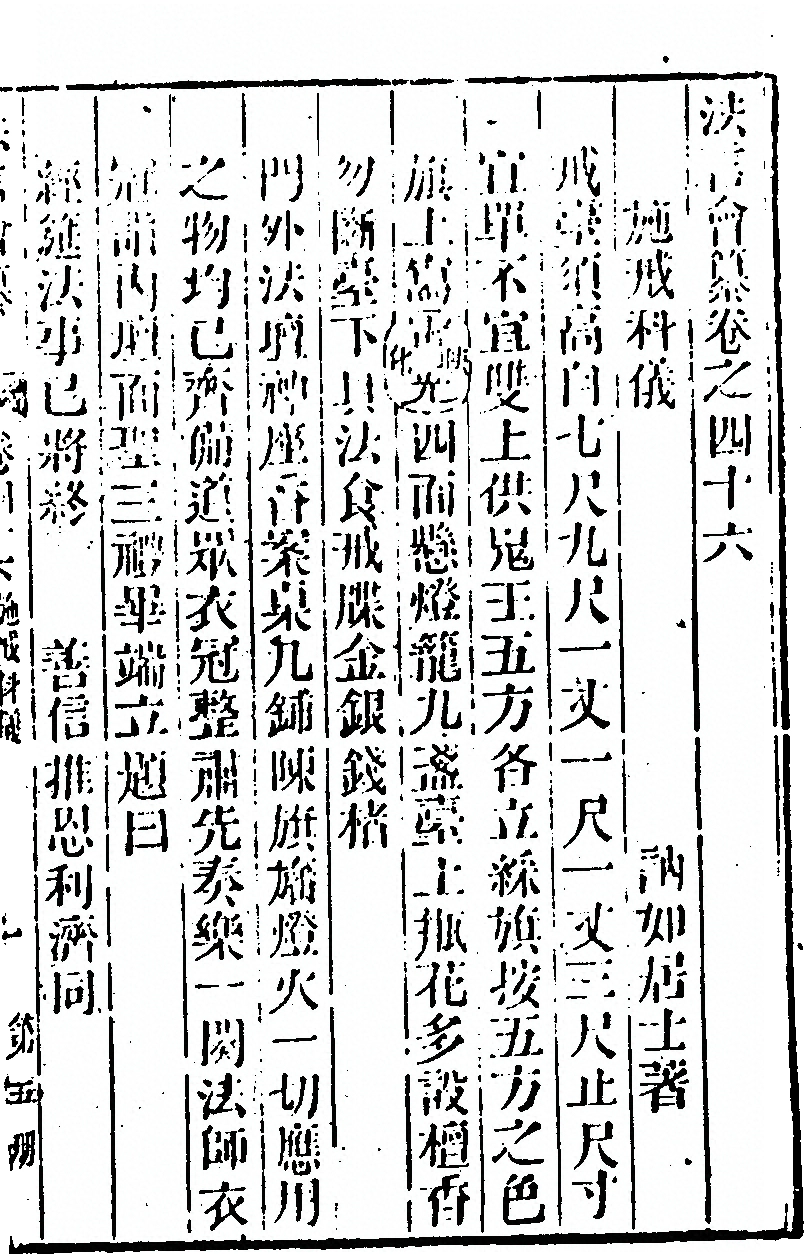 法言會纂卷之四十六
施戒科儀 訥如居士著
戒臺須高自七尺九尺一丈一尺一丈三尺止尺寸
宜單不宜雙上供鬼王五方各立綵旗按五方之色
旗上寫 四面懸燈籠九盞臺上瓶花多設檀香
勿斷臺下具法食戒牒金銀錢楮
門外法壇神座香案桌几鋪陳旗旛燈火一切應用
之物均已齊備道眾衣冠整肅先奏樂一闋法師衣
冠詣內壇面聖三禮畢端立題曰
經筵法事已將終 善信推恩利濟同
法言會纂 卷四十六施戒科儀 九 第五冊